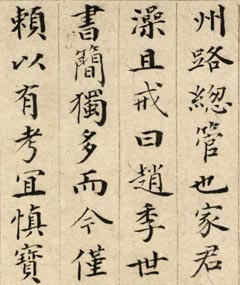 州路緫管也家君
澡且戒曰趙季世
書簡獨多而今僅
頼以有考宜慎寶